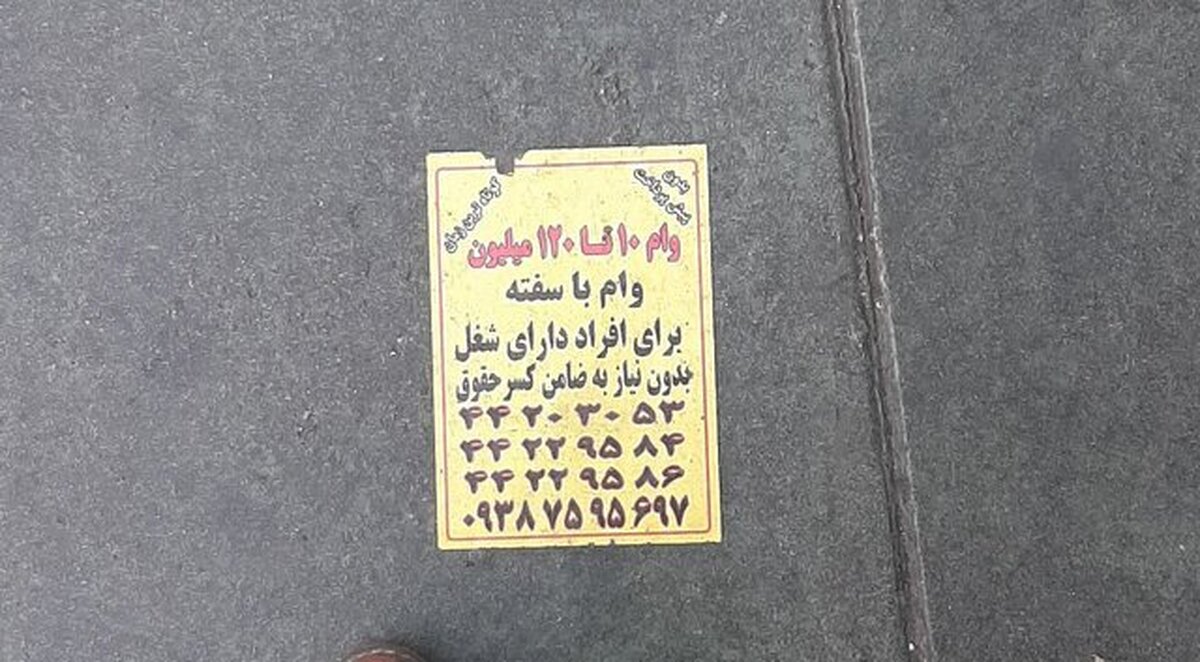 بدون
پیش پرداخت
کوتاه ترین زمان
وام ۱۰ تا ۱۲۰ میلیون
وام با سفته
برای افراد دارای شغل
بدون نیاز به ضامن کسر حقوق
۴۴ ۲۰ ۳۰ ۵۳
۴۴ ۲۲ ۹۵ ۸۴
۴۴ ۲۲ ۹۵ ۸۶
۰۹۳۸ ۷۵ ۹۵ ۶۹۷